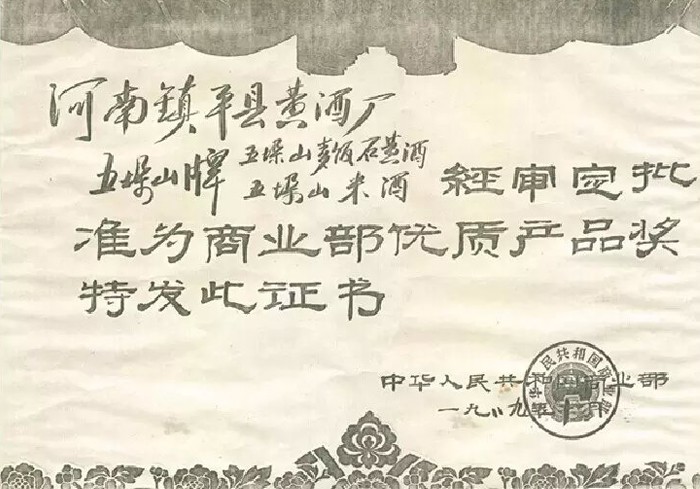 河南鎮平县黄酒厂
五垛山牌 五垛山麥饭石黄酒 經审定批
五垛山米酒
准为商业部优质产品奖
特发此证书
中华人民共和国商业部
一九八九年十月